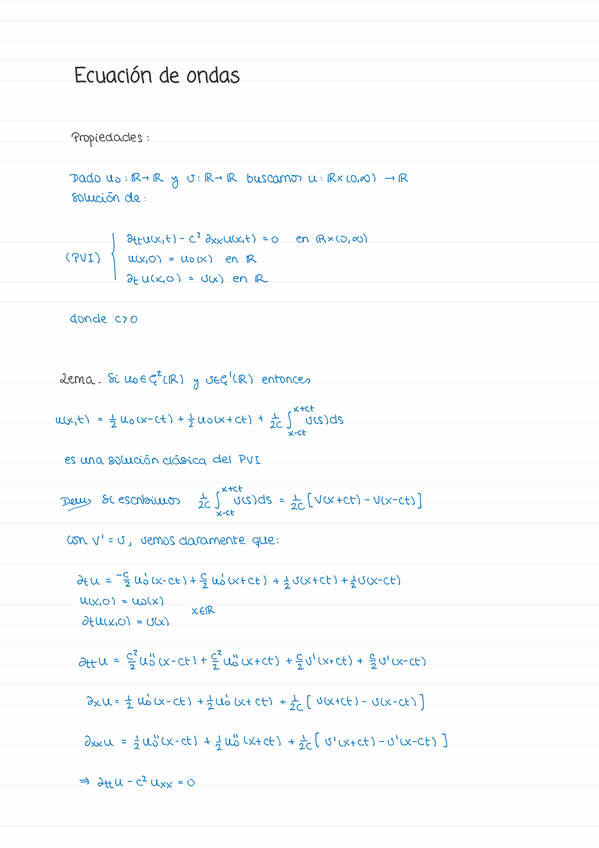 Ecuación de ondas
Propiedades:
Dado u₀: ℝ→ℝ y v: ℝ→ℝ buscamos u: ℝ×(0,∞) → ℝ
solución de:
(PVI) { ∂ttu(x,t) - c² ∂xxu(x,t) = 0 en ℝ×(0,∞)
u(x,0) = u₀(x) en ℝ
∂t u(x,0) = v(x) en ℝ
donde c>0
Lema. Si u₀ ∈ C²(ℝ) y v ∈ C¹(ℝ) entonces
u(x,t) = 1/2 u₀(x-ct) + 1/2 u₀(x+ct) + 1/2c ∫_{x-ct}^{x+ct} v(s)ds
es una solución clásica del PVI
Dem Si escribimos 1/2c ∫_{x-ct}^{x+ct} v(s)ds = 1/2c [V(x+ct) - V(x-ct)]
con V' = v, vemos claramente que:
∂tu = -c/2 u₀'(x-ct) + c/2 u₀'(x+ct) + 1/2 v(x+ct) + 1/2 v(x-ct)
u(x,0) = u₀(x)
x∈ℝ
∂tu(x,0) = v(x)
∂ttu = c²/2 u₀''(x-ct) + c²/2 u₀''(x+ct) + c/2 v'(x+ct) + c/2 v'(x-ct)
∂xu = 1/2 u₀'(x-ct) + 1/2 u₀'(x+ct) + 1/2c [v(x+ct) - v(x-ct)]
∂xxu = 1/2 u₀''(x-ct) + 1/2 u₀''(x+ct) + 1/2c [v'(x+ct) - v'(x-ct)]
⇒ ∂ttu - c² uxx = 0